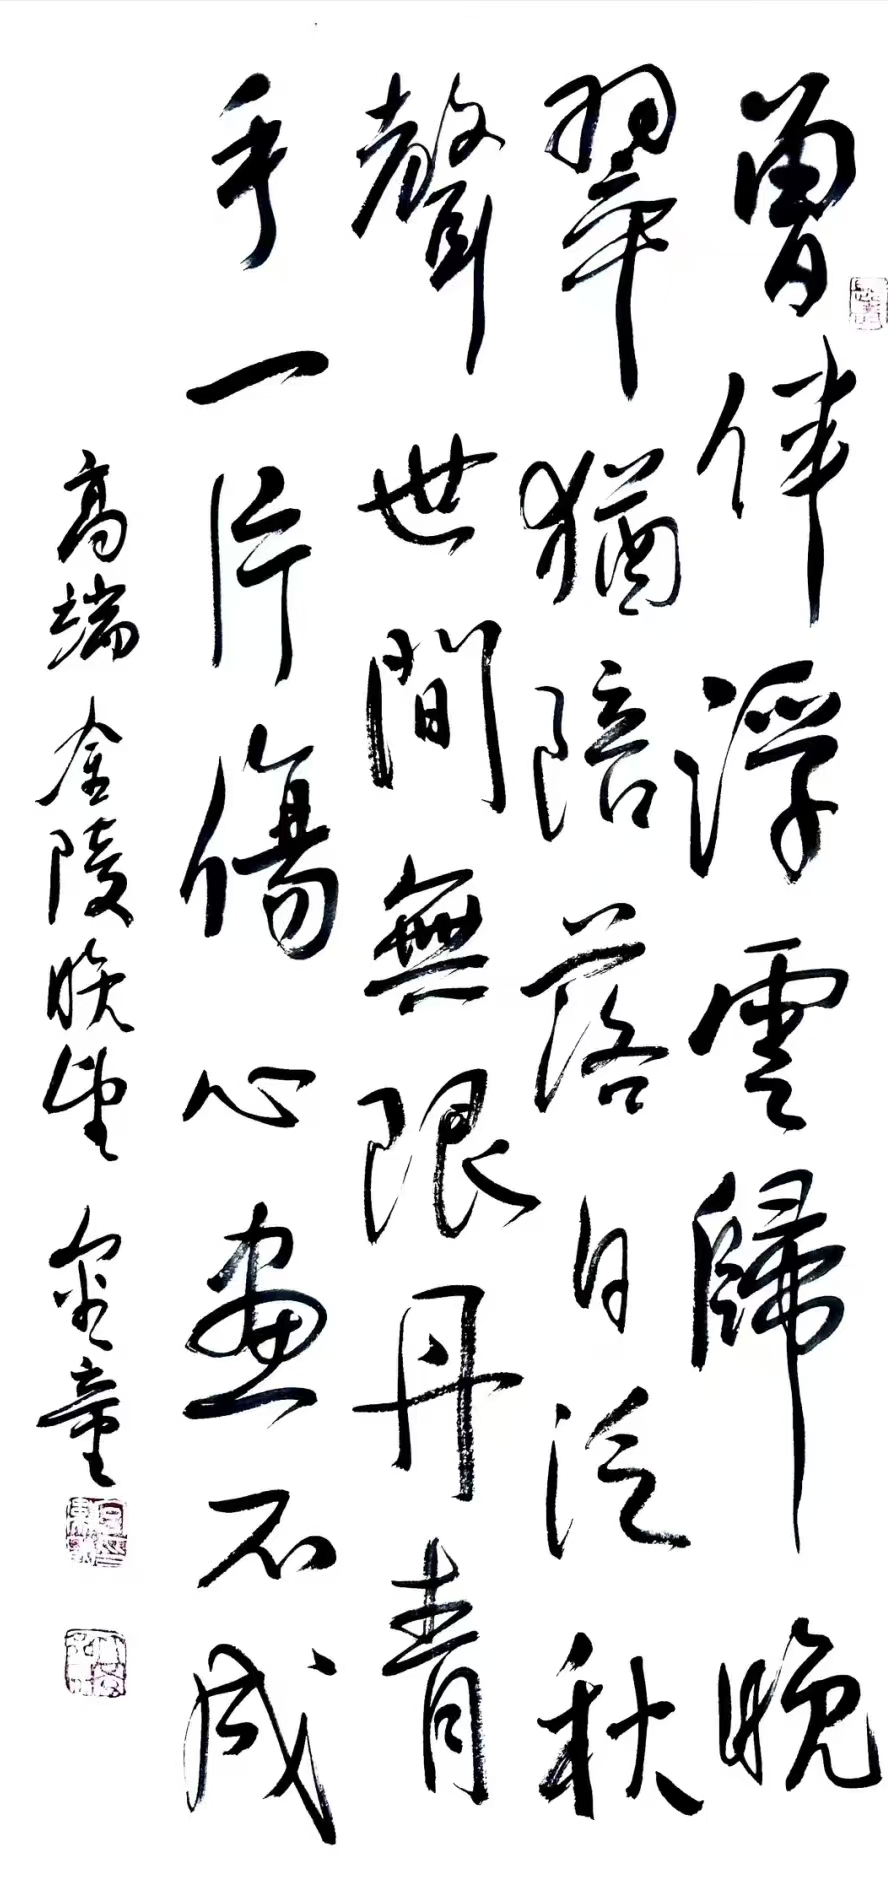 曾伴浮雲歸晚
翠猶陪落日泛秋
聲世間無限丹青
手一片傷心畫不成
高端 金陵晚望 童